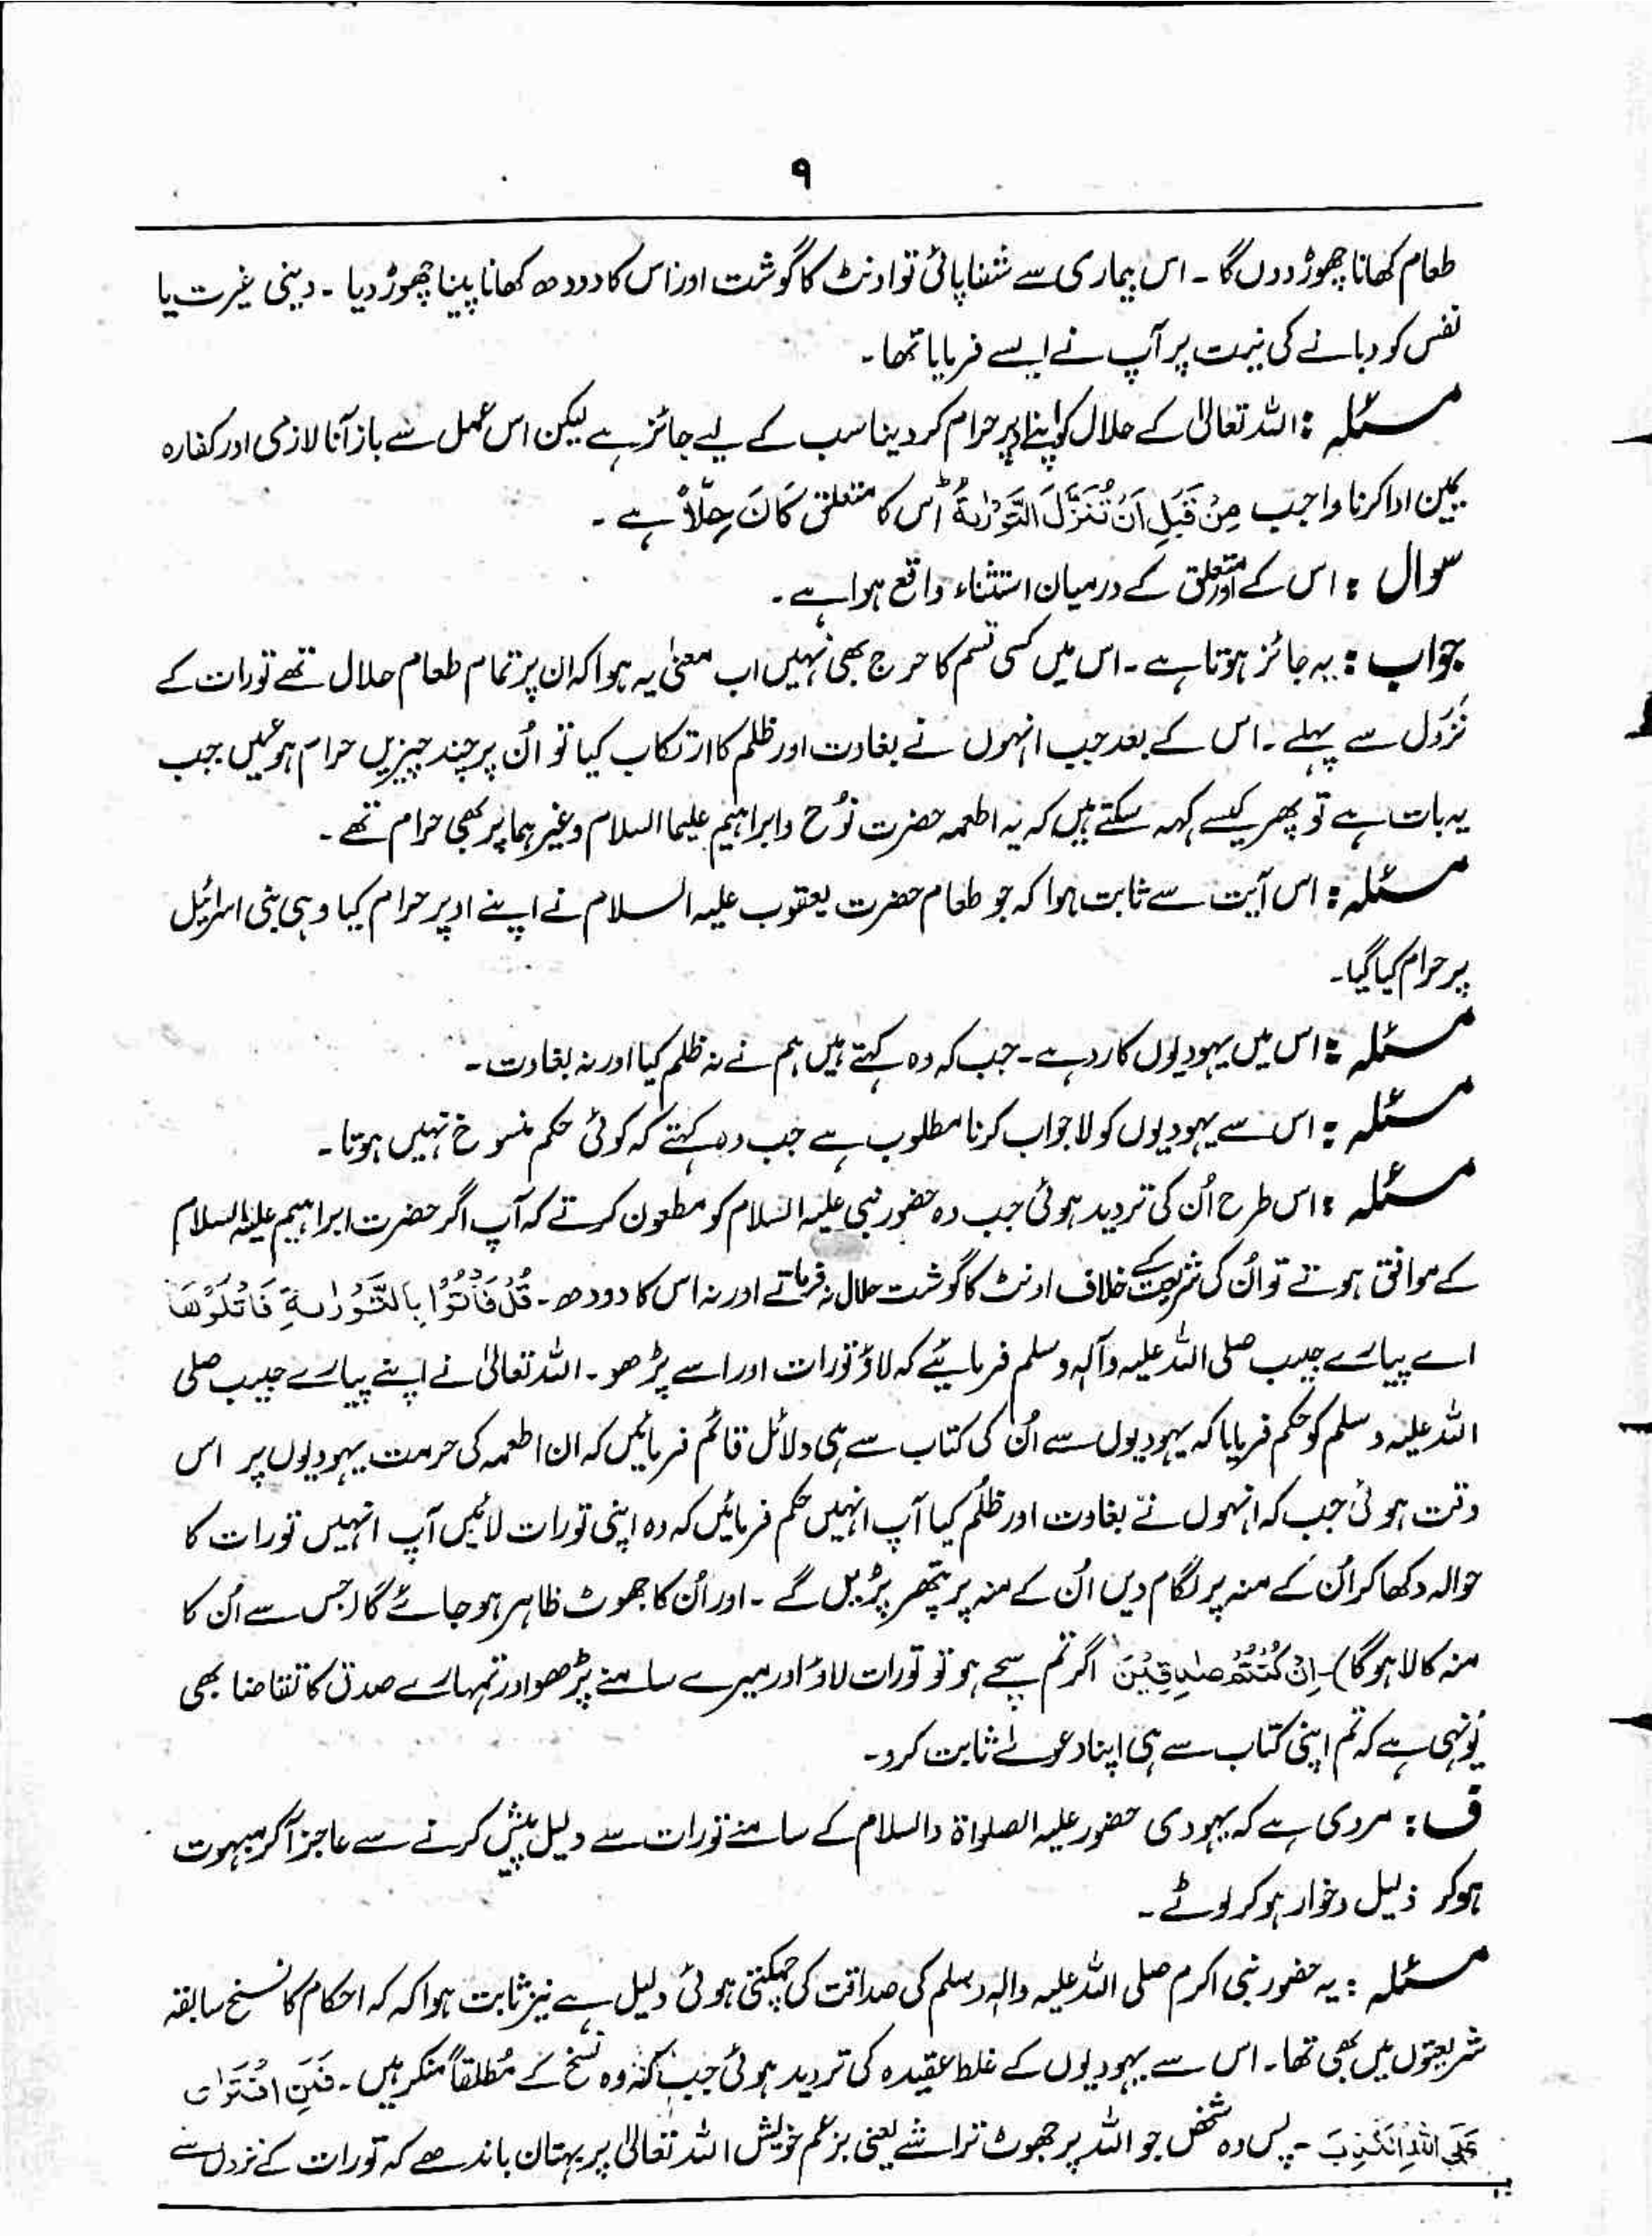 ۹
طعام کھانا چھوڑ دوں گا ۔ اس بیماری سے شفا پائی تو اونٹ کا گوشت اور اس کا دودھ کھانا پینا چھوڑ دیا ۔ دینی غیرت یا
نفس کو دبانے کی نیت پر آپ نے ایسے فرمایا تھا ۔
مسئلہ : اللہ تعالیٰ کے حلال کو اپنے اوپر حرام کر دینا سب کے لیے جائز ہے لیکن اس عمل سے باز آنا لازمی اور کفارہ
یمین ادا کرنا واجب مِنْ قَبْلِ اَنْ تُنَزَّلَ التَّوْرٰىةُ اس کا متعلق كَانَ حِلًّا ہے ۔
سوال : اس کے اور متعلق کے درمیان استثناء واقع ہوا ہے ۔
جواب : یہ جائز ہوتا ہے ۔ اس میں کسی قسم کا حرج بھی نہیں اب معنیٰ یہ ہوا کہ ان پر تمام طعام حلال تھے تورات کے
نزول سے پہلے ۔ اس کے بعد جب انہوں نے بغاوت اور ظلم کا ارتکاب کیا تو اُن پر چند چیزیں حرام ہوئیں جب
یہ بات ہے تو پھر کیسے کہہ سکتے ہیں کہ یہ اطعمہ حضرت نُوح و ابراہیم علیہا السلام وغیرہما پر بھی حرام تھے ۔
مسئلہ : اس آیت سے ثابت ہوا کہ جو طعام حضرت یعقوب علیہ السلام نے اپنے اوپر حرام کیا وہی بنی اسرائیل
پر حرام کیا گیا ۔
مسئلہ : اس میں یہودیوں کا رد ہے ۔ جب کہ وہ کہتے ہیں ہم نے نہ ظلم کیا اور نہ بغاوت ۔
مسئلہ : اس سے یہودیوں کو لاجواب کرنا مطلوب ہے جب وہ کہتے کہ کوئی حکم منسوخ نہیں ہوتا ۔
مسئلہ : اس طرح اُن کی تردید ہوئی جب وہ حضور نبی علیہ السلام کو مطعون کرتے کہ آپ اگر حضرت ابراہیم علیہ السلام
کے موافق ہوتے تو اُن کی شریعت کے خلاف اونٹ کا گوشت حلال نہ فرماتے اور نہ اس کا دودھ ۔ قُلْ فَاْتُوْا بِالتَّوْرٰىةِ فَاتْلُوْهَا
اے پیارے حبیب صلی اللہ علیہ وآلہ وسلم فرمائیے کہ لاؤ تورات اور اسے پڑھو ۔ اللہ تعالیٰ نے اپنے پیارے حبیب صلی
اللہ علیہ وسلم کو حکم فرمایا کہ یہودیوں سے اُن کی کتاب سے ہی دلائل قائم فرمائیں کہ ان اطعمہ کی حرمت یہودیوں پر اس
وقت ہوئی جب کہ انہوں نے بغاوت اور ظلم کیا آپ انہیں حکم فرمائیں کہ وہ اپنی تورات لائیں آپ انہیں تورات کا
حوالہ دکھا کر اُن کے منہ پر لگام دیں اُن کے منہ پر پتھر پڑیں گے ۔ اور اُن کا جھوٹ ظاہر ہو جائے گا (جس سے اُن کا
منہ کالا ہو گا) ۔ اِنْ كُنْتُمْ صٰدِقِيْنَ اگر تم سچے ہو تو تورات لاؤ اور میرے سامنے پڑھو اور تمہارے صدق کا تقاضا بھی
یُونہی ہے کہ تم اپنی کتاب سے ہی اپنا دعوےٰ ثابت کرو ۔
ف : مروی ہے کہ یہودی حضور علیہ الصلواۃ والسلام کے سامنے تورات سے دلیل پیش کرنے سے عاجز آکر مبہوت
ہوکر ذلیل و خوار ہو کر لوٹے ۔
مسئلہ : یہ حضور نبی اکرم صلی اللہ علیہ والہ وسلم کی صداقت کی چمکتی ہوئی دلیل ہے نیز ثابت ہوا کہ کہ احکام کا نسخ سابقہ
شریعتوں میں بھی تھا ۔ اس سے یہودیوں کے غلط عقیدہ کی تردید ہوئی جب کہ وہ نسخ کے مُطلقاً منکر ہیں ۔ فَمَنِ افْتَرٰى
عَلَى اللّٰهِ الْكَذِبَ ۔ پس وہ شخص جو اللہ پر جھوٹ تراشے یعنی بزعم خویش اللہ تعالیٰ پر بہتان باندھے کہ تورات کے نزول سے